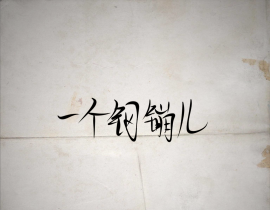 一个钢镚儿